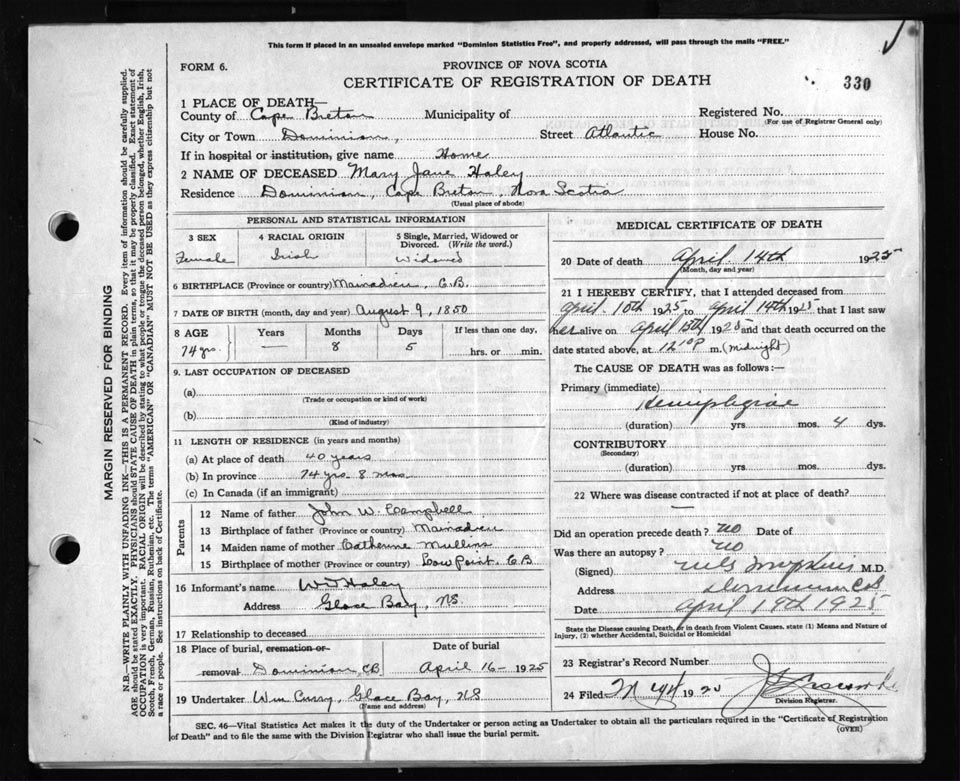 This form if placed in an unsealed envelope marked "Dominion Statistics Free", and properly addressed, will pass through the mails "FREE."
FORM 6.
PROVINCE OF NOVA SCOTIA
CERTIFICATE OF REGISTRATION OF DEATH
330
MARGIN RESERVED FOR BINDING
N.B.—WRITE PLAINLY WITH UNFADING INK—THIS IS A PERMANENT RECORD. Every item of information should be carefully supplied.
AGE should be stated EXACTLY. PHYSICIANS should STATE CAUSE OF DEATH in plain terms, so that it may be properly classified. Exact statement of
OCCUPATION is very important. RACIAL ORIGIN will be described by stating to what people or tongue the deceased person belonged, whether English, Irish,
Scotch, French, German, Russian, Ruthenian, etc. The terms "AMERICAN" OR "CANADIAN" MUST NOT BE USED as they express citizenship but not
a race or people. See instructions on back of Certificate.
1 PLACE OF DEATH—
County of Cape Breton Municipality of Registered No.
(For use of Registrar General only)
City or Town Dominion, Street Atlantic House No.
If in hospital or institution, give name Home
2 NAME OF DECEASED Mary Jane Haley
Residence Dominion, Cape Breton, Nova Scotia
(Usual place of abode)
PERSONAL AND STATISTICAL INFORMATION
3 SEX 4 RACIAL ORIGIN 5 Single, Married, Widowed or Divorced. (Write the word.)
Female Irish Widowed
6 BIRTHPLACE (Province or country) Mainadieu, C.B.
7 DATE OF BIRTH (month, day and year) August 9, 1850
8 AGE Years Months Days If less than one day,
74 yrs. — 8 5 hrs. or min.
9. LAST OCCUPATION OF DECEASED
(a)
(Trade or occupation or kind of work)
(b)
(Kind of industry)
11 LENGTH OF RESIDENCE (in years and months)
(a) At place of death 40 years
(b) In province 74 yrs. 8 mos.
(c) In Canada (if an immigrant)
Parents
12 Name of father John W. Campbell
13 Birthplace of father (Province or country) Mainadieu
14 Maiden name of mother Catherine Mullins
15 Birthplace of mother (Province or country) Low Point, C.B
16 Informant's name W J Haley
Address Glace Bay, NS
17 Relationship to deceased
18 Place of burial, cremation or removal Dominion, CB
Date of burial April 16 - 1925
19 Undertaker Wm Curry, Glace Bay, NS
(Name and address)
MEDICAL CERTIFICATE OF DEATH
20 Date of death April 14th 1925
(Month, day and year)
21 I HEREBY CERTIFY, that I attended deceased from
April 10th 1925 to April 14th 1925 that I last saw
her alive on April 13th 1925 and that death occurred on
date stated above, at 12 10 P m. (midnight)
The CAUSE OF DEATH was as follows:—
Primary (immediate)
Hemiplegiae
(duration) yrs. mos. 4 dys.
CONTRIBUTORY
(Secondary)
(duration) yrs. mos. dys.
22 Where was disease contracted if not at place of death?
—
Did an operation precede death? no Date of
Was there an autopsy? no
(Signed) M.D.
Address Dominion CB
Date April 19th 1925
State the Disease causing Death, or in death from Violent Causes, state (1) Means and Nature of
Injury, (2) whether Accidental, Suicidal or Homicidal
23 Registrar's Record Number
24 Filed 1925
Division Registrar.
SEC. 46—Vital Statistics Act makes it the duty of the Undertaker or person acting as Undertaker to obtain all the particulars required in the "Certificate of Registration
of Death" and to file the same with the Division Registrar who shall issue the burial permit.
(OVER)